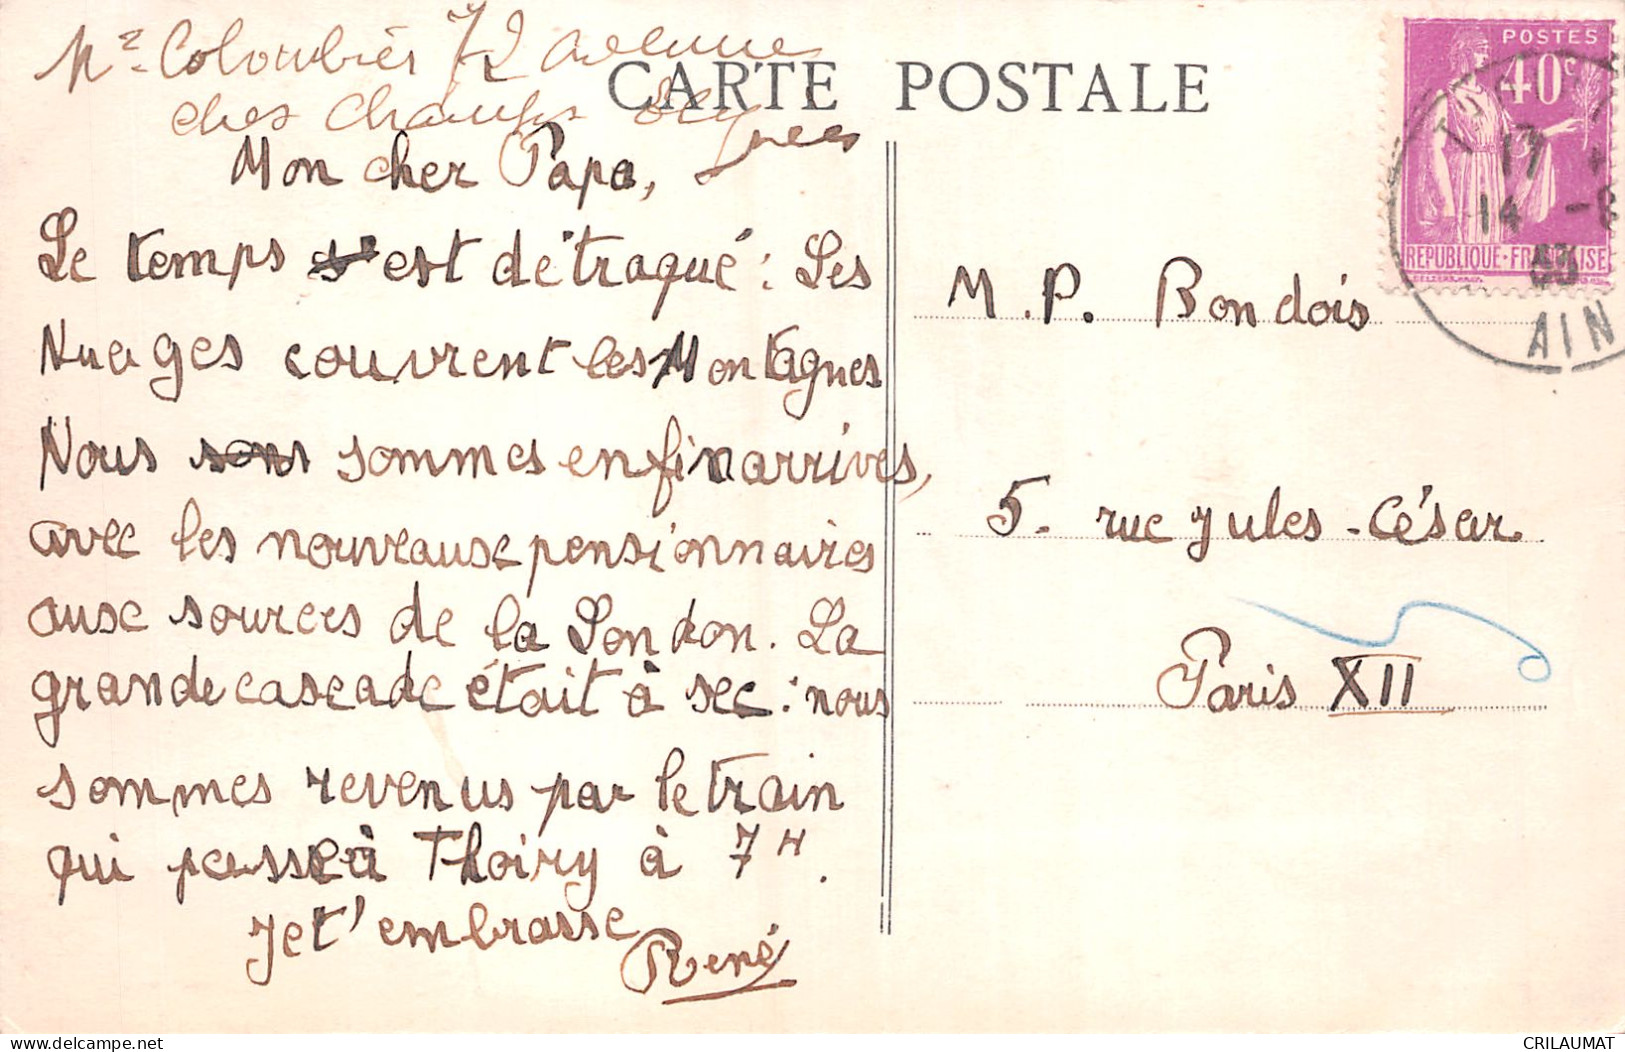 Mr Colombiès 72 avenue
des Champs Elysées
CARTE POSTALE
Mon cher Papa,
Le temps s'est détraqué : Les
Nuages couvrent les Montagnes
Nous sommes enfin arrivés,
avec les nouveaux pensionnaires
aux sources de la London. La
grande cascade était à sec : nous
sommes revenus par le train
qui passe à Thoiry à 7H.
Je t'embrasse
René
POSTES
40c
RÉPUBLIQUE-FRANÇAISE
17
14
AIN
M. P. Bondois
5. rue Jules-César
Paris XII
CRILAUMAT